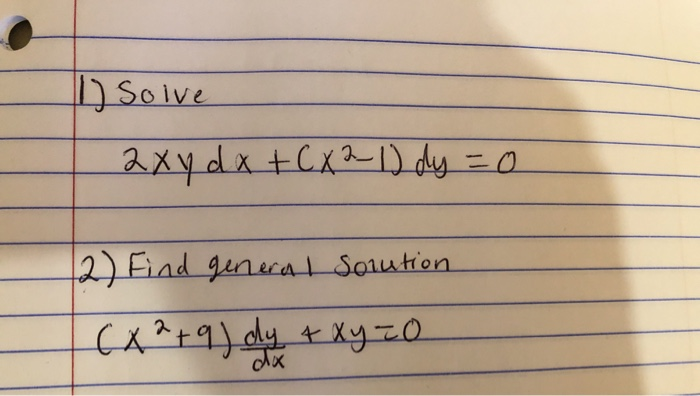 1) Solve
2xy dx + (x²-1) dy = 0
2) Find general solution
(x²+9) dy/dx + xy = 0